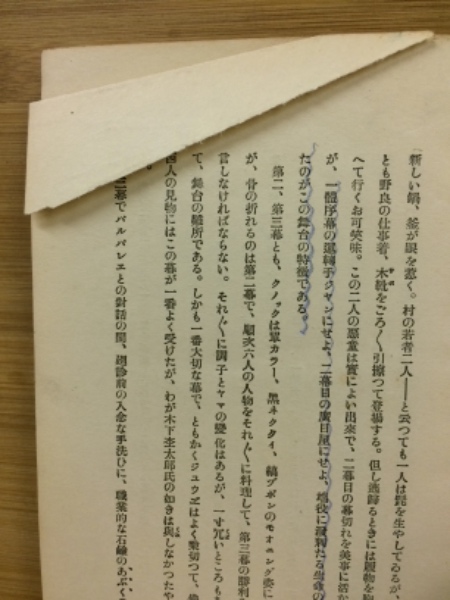 「新しい鍋、釜が眼を惹く。村の若者二人――と云つても一人は髭を生やしてゐるが、
とも野良の仕事着、木靴をごろ〳〵引擦つて登場する。但し逃歸るときには履物を
へて行くお可笑味。この二人の惡黨は實によい出來で、二幕目の幕切れを美事に活か
が、一體序幕の運轉手ジャンにせよ、二幕目の廣目屋にせよ、端役に潑剌たる
たのがこの舞台の特徴である。
第二、第三幕とも、クノックは單カラー、黑ネクタイ、縞ヅボンのモオニング姿に
が、骨の折れるのは第二幕で、順次六人の人物をそれ〴〵に料理して、第三幕の勝利
言しなければならない。それ〴〵に調子とヤマの變化はあるが、一寸冗いところも
て、舞台の難所である。しかも一番大切な幕で、ともかくジュウヹはよく乘切つて、
人の見物にはこの幕が一番よく受けたが、わが木下杢太郎氏の如きは與しなかつたや
。
二幕でバルバレエとの對話の間、廻診前の入念な手洗ひに、職業的な石鹼のあぶく